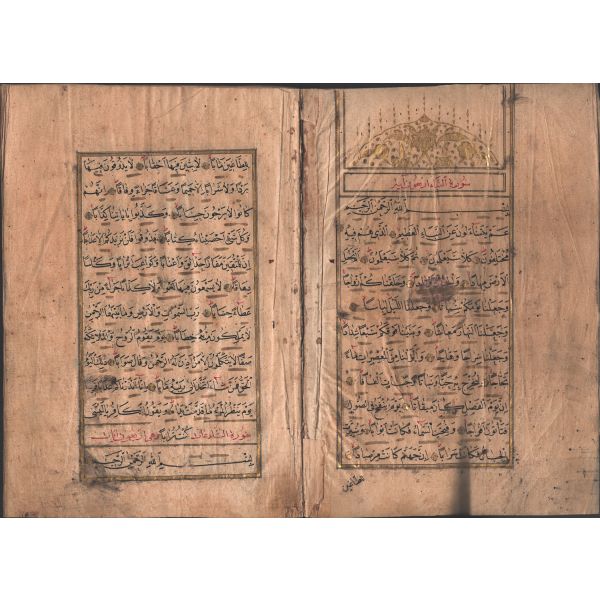 سورة النبأ اربعون آية
بسم الله الرحمن الرحيم
عم يتساءلون عن النبإ العظيم الذي هم فيه
مختلفون كلا سيعلمون ثم كلا سيعلمون ألم نجعل
الأرض مهادا والجبال أوتادا وخلقناكم أزواجا
وجعلنا نومكم سباتا وجعلنا الليل لباسا
وجعلنا النهار معاشا وبنينا فوقكم سبعا شدادا
وجعلنا سراجا وهاجا وأنزلنا من المعصرات ماء
ثجاجا لنخرج به حبا ونباتا وجنات ألفافا
إن يوم الفصل كان ميقاتا يوم ينفخ في الصور
فتأتون أفواجا وفتحت السماء فكانت أبوابا وسيرت
الجبال فكانت سرابا إن جهنم كانت مرصادا
للطاغين
للطاغين مآبا لابثين فيها أحقابا لا يذوقون فيها
بردا ولا شرابا إلا حميما وغساقا جزاء وفاقا إنهم
كانوا لا يرجون حسابا وكذبوا بآياتنا كذابا
وكل شيء أحصيناه كتابا فذوقوا فلن نزيدكم إلا عذابا
إن للمتقين مفازا حدائق وأعنابا وكواعب أترابا وكأسا
دهاقا لا يسمعون فيها لغوا ولا كذابا جزاء من ربك
عطاء حسابا رب السموات والأرض وما بينهما الرحمن
لا يملكون منه خطابا يوم يقوم الروح والملائكة
صفا لا يتكلمون إلا من أذن له الرحمن وقال صوابا ذلك اليوم
الحق فمن شاء اتخذ إلى ربه مآبا إنا أنذرناكم عذابا قريبا
يوم ينظر المرء ما قدمت يداه ويقول الكافر يا ليتني
سورة النازعات كنت ترابا وهي اربعون
بسم الله الرحمن الرحيم